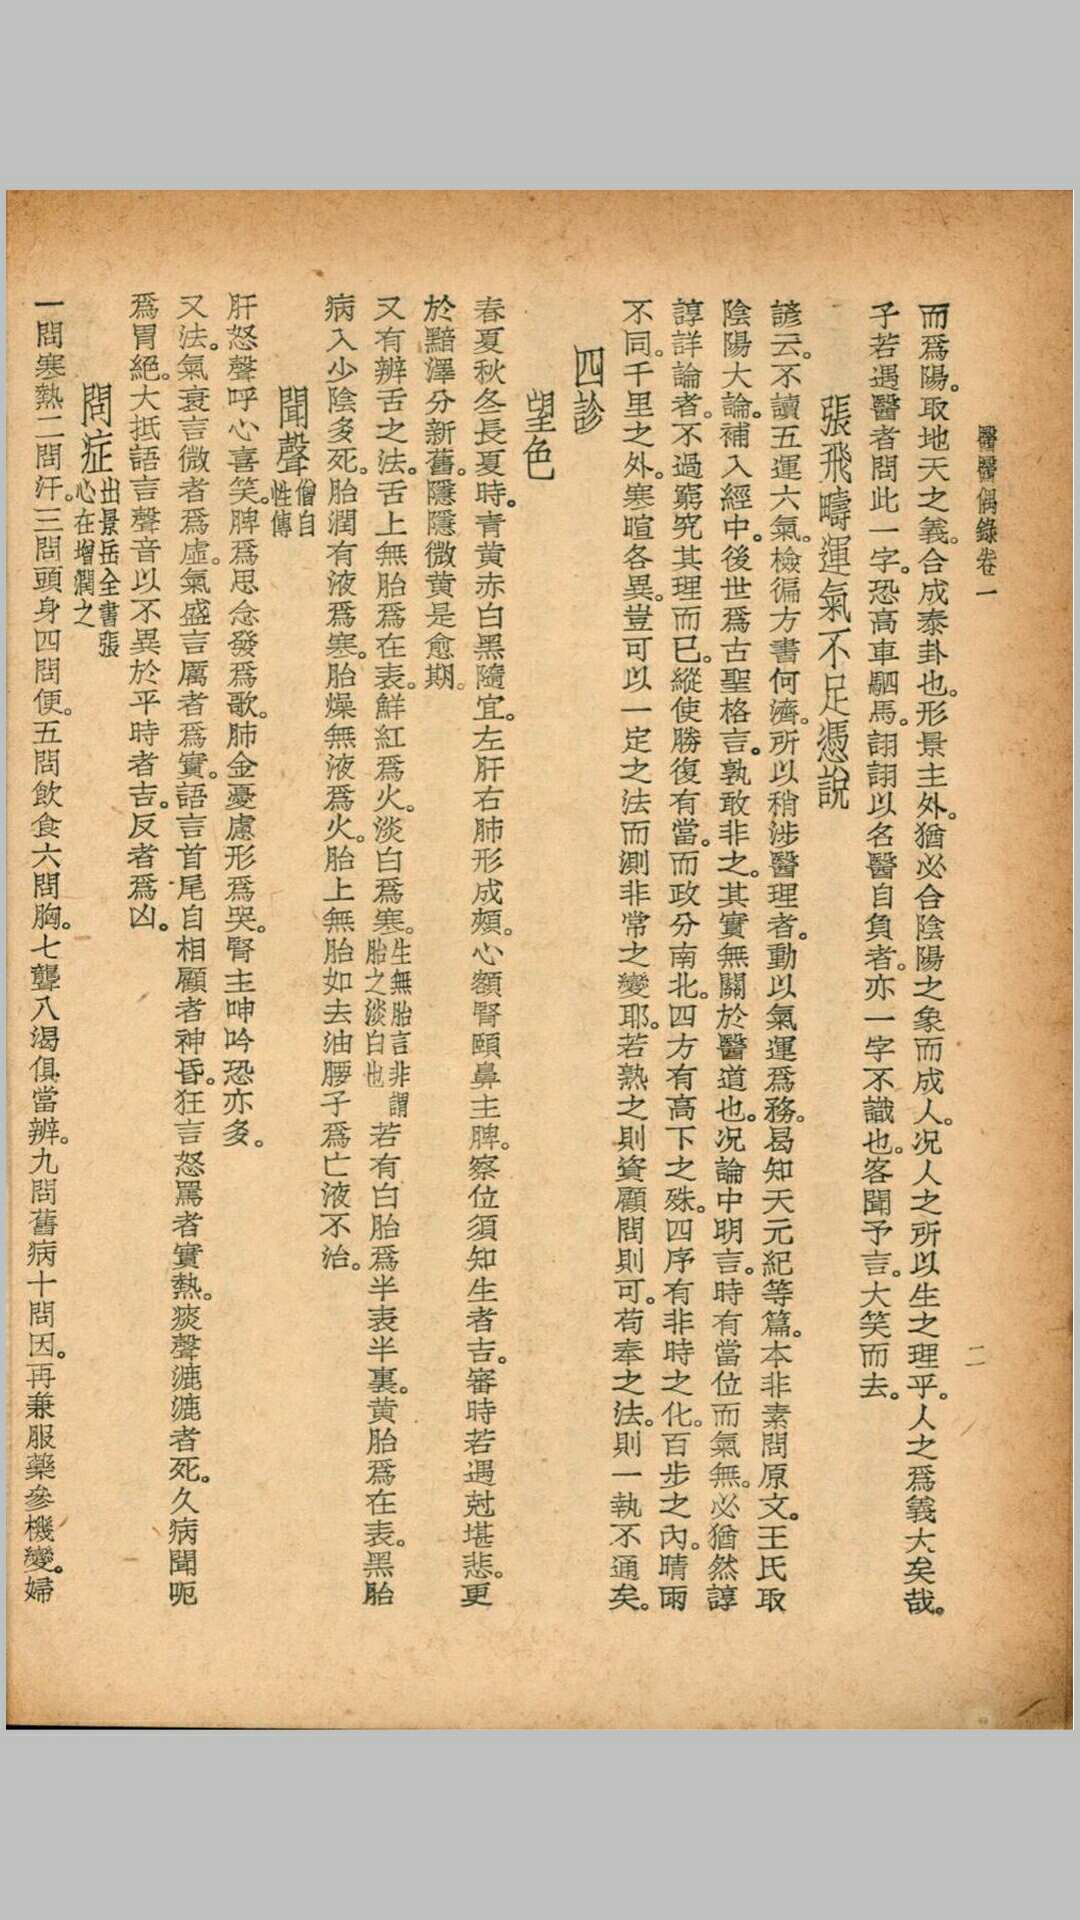 醫醫偶錄卷一
二
而爲陽。取地天之義。合成泰卦也。形景主外。猶必合陰陽之象而成人。况人之所以生之理乎。人之爲義大矣哉。
子若遇醫者問此一字。恐高車駟馬。詡詡以名醫自負者。亦一字不識也。客聞予言。大笑而去。
張飛疇運氣不足憑說
諺云。不讀五運六氣。檢徧方書何濟。所以稍涉醫理者。動以氣運爲務。曷知天元紀等篇。本非素問原文。王氏取
陰陽大論。補入經中。後世爲古聖格言。孰敢非之。其實無關於醫道也。况論中明言。時有當位而氣無。必猶然諄
諄詳論者。不過窮究其理而已。縱使勝復有當。而政分南北。四方有高下之殊。四序有非時之化。百步之內。晴雨
不同。千里之外。寒暄各異。豈可以一定之法而測非常之變耶。若熟之則資顧問則可。苟奉之法。則一執不通矣。
四診
望色
春夏秋冬長夏時。青黃赤白黑隨宜。左肝右肺形成頰。心額腎頤鼻主脾。察位須知生者吉。審時若遇尅堪悲。更
於黯澤分新舊。隱隱微黃是愈期。
又有辨舌之法。舌上無胎爲在表。鮮紅爲火。淡白爲寒。生無胎言非謂胎之淡白也若有白胎爲半表半裏。黃胎爲在表。黑胎
病入少陰多死。胎潤有液爲寒。胎燥無液爲火。胎上無胎如去油腰子爲亡液不治。
聞聲僧自性傳
肝怒聲呼心喜笑。脾爲思念發爲歌。肺金憂慮形爲哭。腎主呻吟恐亦多。
又法。氣衰言微者爲虛。氣盛言厲者爲實。語言首尾自相顧者神昏。狂言怒罵者實熱。痰聲漉漉者死。久病聞呃
爲胃絕。大抵語言聲音以不異於平時者吉。反者爲凶。
問症出景岳全書張心在增潤之
一問寒熱二問汗。三問頭身四問便。五問飲食六問胸。七聾八渴俱當辨。九問舊病十問因。再兼服藥參機變。婦